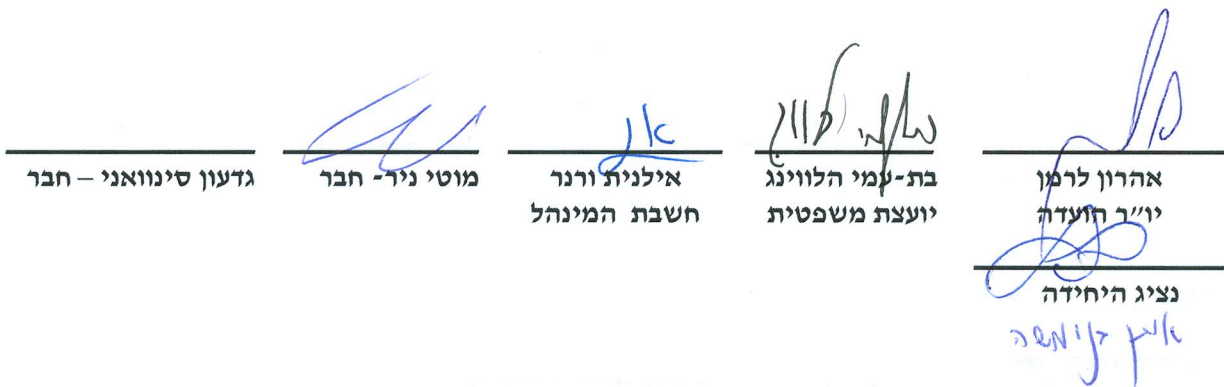 אהרון לרמן
יו״ר הועדה
בת-עמי הלווינג
יועצת משפטית
אילנית ורנר
חשבת המינהל
מוטי ניר- חבר
גדעון סינוואני – חבר
נציג היחידה